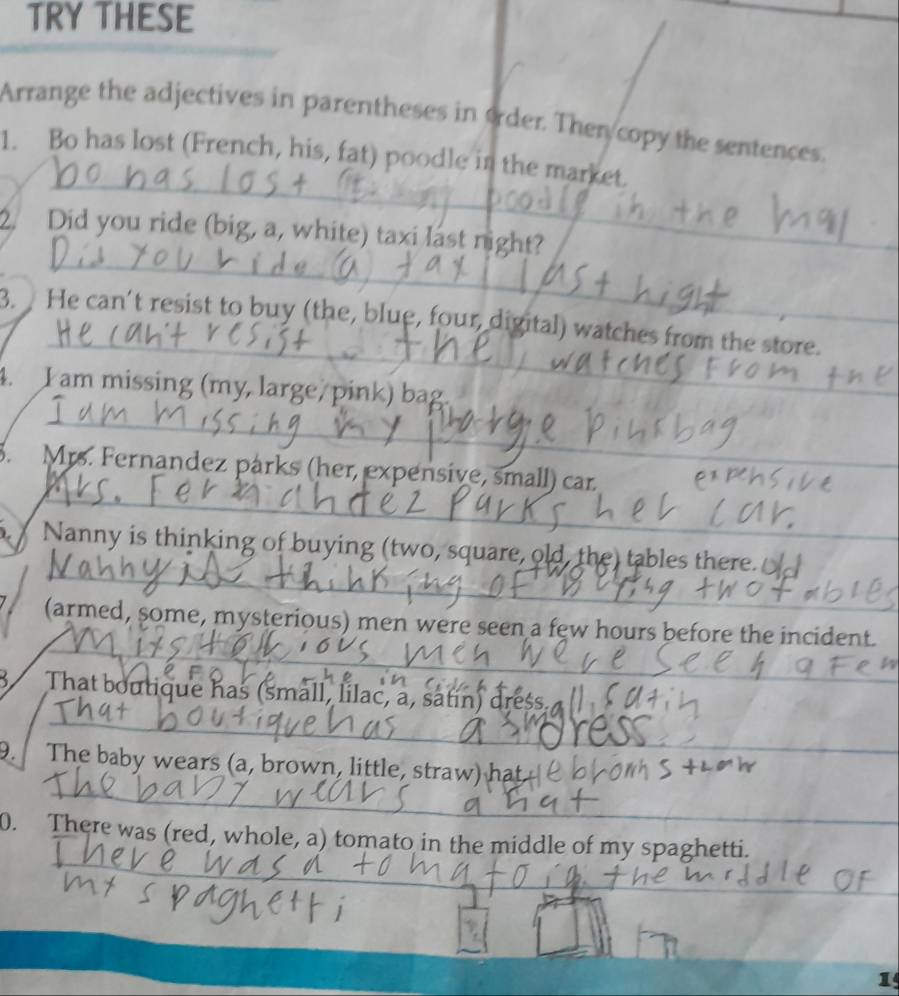 TRY THESE
Arrange the adjectives in parentheses in order. Then copy the sentences.
1. Bo has lost (French, his, fat) poodle in the market.
bo has lost poodle in the
2. Did you ride (big, a, white) taxi last night?
Did you ride (a) taxi last night
3. He can't resist to buy (the, blue, four, digital) watches from the store.
He can't resist the watches From the
4. I am missing (my, large, pink) bag.
I am missing my large Pink bag
Mrs. Fernandez parks (her, expensive, small) car.
expensive
Mrs. Parks her car.
Nanny is thinking of buying (two, square, old, the) tables there.
old
Nanny thinking of two tables
(armed, some, mysterious) men were seen a few hours before the incident.
men were seen a Few
That boutique has (small, lilac, a, satin) dress.
satin
That boutique has a
9. The baby wears (a, brown, little, straw) hat.
brown straw
The baby wears a hat
0. There was (red, whole, a) tomato in the middle of my spaghetti.
There was a tomato in the middle OF
my spaghetti